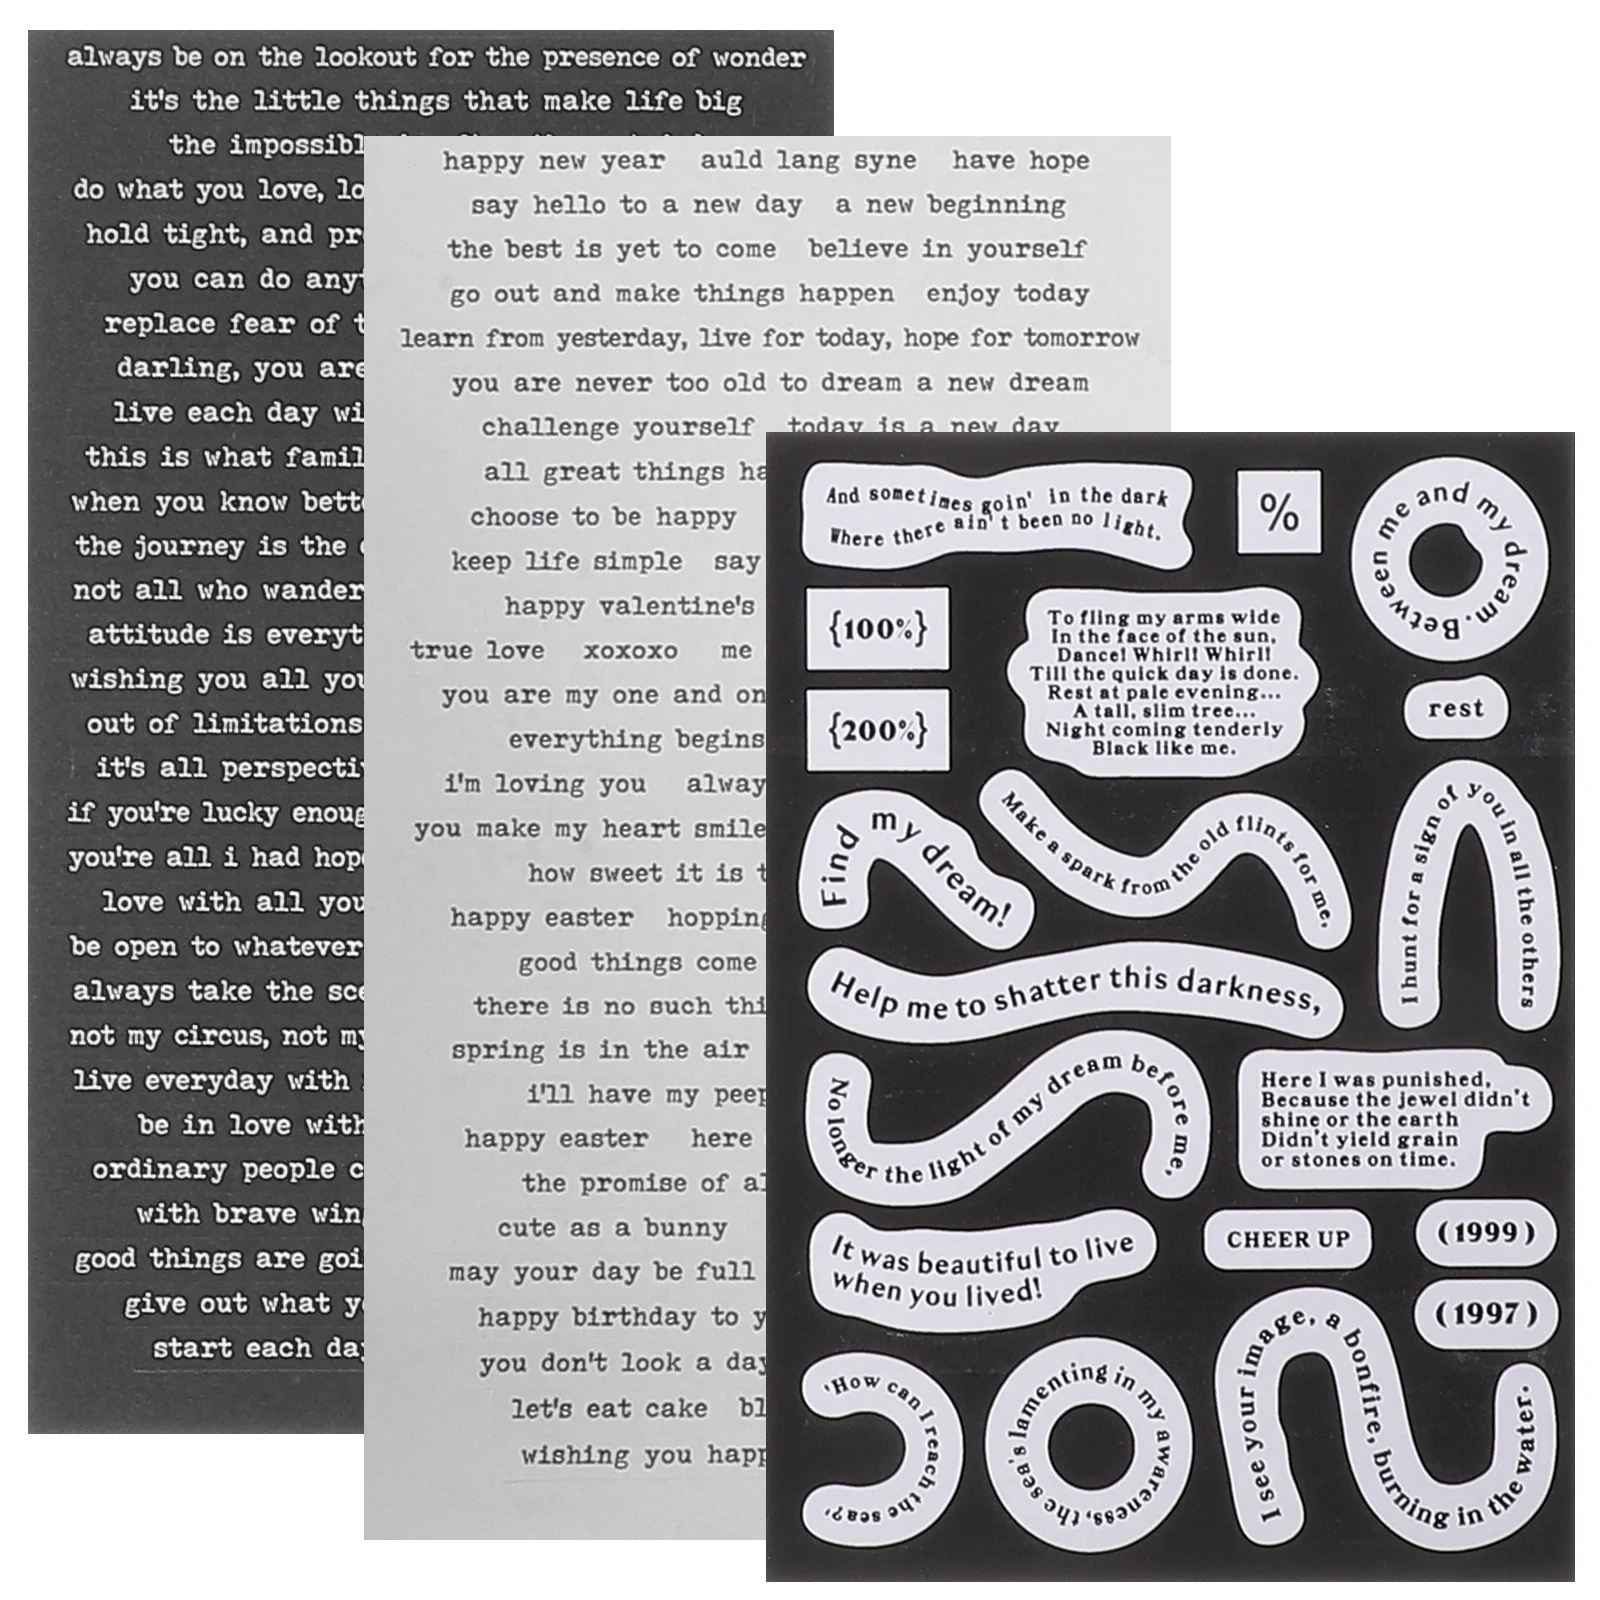 always be on the lookout for the presence of wonder
it's the little things that make life big
the impossibl
do what you love, lo
hold tight, and pr
you can do any
replace fear of t
darling, you are
live each day wi
this is what famil
when you know bett
the journey is the
not all who wander
attitude is everyt
wishing you all you
out of limitations
it's all perspecti
if you're lucky enoug
you're all i had hop
love with all you
be open to whatever
always take the sc
not my circus, not my
live everyday with
be in love with
ordinary people c
with brave win
good things are goi
give out what y
start each day
happy new year auld lang syne have hope
say hello to a new day a new beginning
the best is yet to come believe in yourself
go out and make things happen enjoy today
learn from yesterday, live for today, hope for tomorrow
you are never too old to dream a new dream
challenge yourself today is a new day
all great things ha
choose to be happy
keep life simple say
happy valentine's
true love xoxoxo me
you are my one and on
everything begins
i'm loving you alway
you make my heart smile
how sweet it is t
happy easter hopping
good things come
there is no such thi
spring is in the air
i'll have my peep
happy easter here
the promise of al
cute as a bunny
may your day be full
happy birthday to y
you don't look a day
let's eat cake bl
wishing you happ
And sometimes goin' in the dark
Where there ain't been no light.
%
Between me and my dream.
{100%}
To fling my arms wide
In the face of the sun,
Dance! Whirl! Whirl!
Till the quick day is done.
Rest at pale evening...
A tall, slim tree...
Night coming tenderly
Black like me.
rest
{200%}
Find my dream!
Make a spark from the old flints for me,
I hunt for a sign of you in all the others
Help me to shatter this darkness,
No longer the light of my dream before me,
Here I was punished,
Because the jewel didn't
shine or the earth
Didn't yield grain
or stones on time.
It was beautiful to live
when you lived!
CHEER UP
(1999)
(1997)
'How can I reach the sea?'
the sea's lamenting in my awareness,
I see your image, a bonfire, burning in the water.